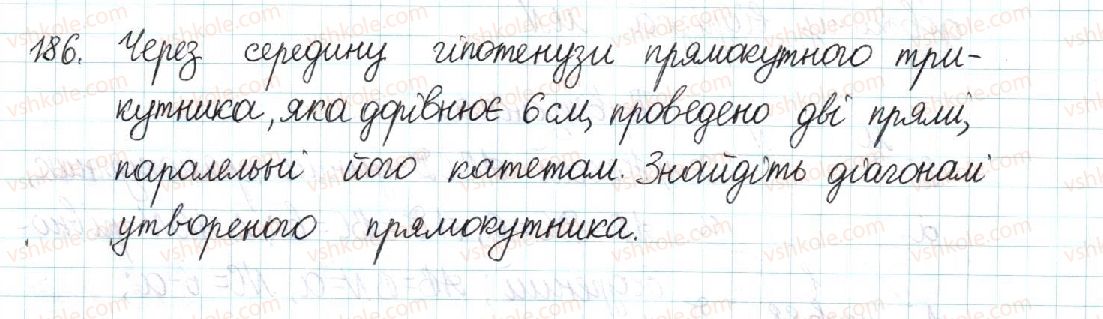 186. Через середину гіпотенузи прямокутного три-
кутника, яка дорівнює 6 см, проведено дві прямі,
паралельні його катетам. Знайдіть діагоналі
утвореного прямокутника.